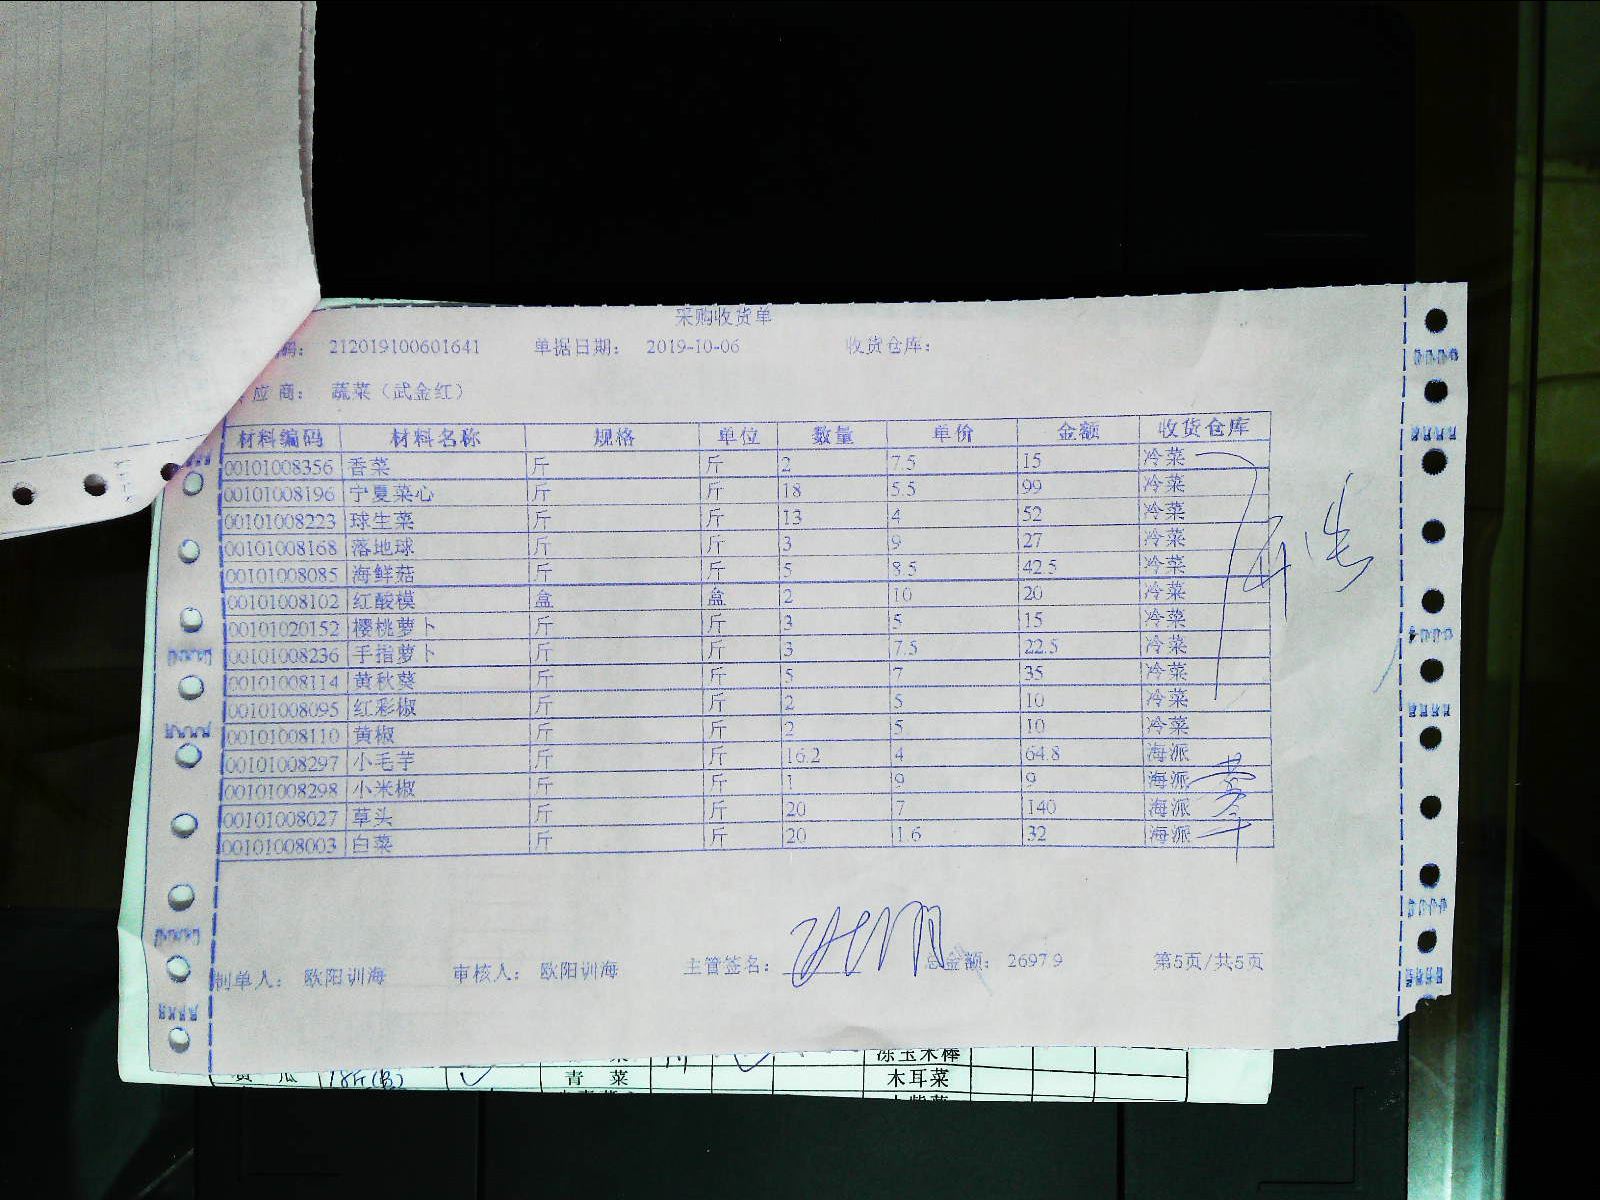 采购收货单
码: 212019100601641 单据日期: 2019-10-06 收货仓库:
应商: 蔬菜（武金红）
材料编码 材料名称 规格 单位 数量 单价 金额 收货仓库
00101008356 香菜 斤 斤 2 7.5 15 冷菜
00101008196 宁夏菜心 斤 斤 18 5.5 99 冷菜
00101008223 球生菜 斤 斤 13 4 52 冷菜
00101008168 落地球 斤 斤 3 9 27 冷菜
00101008085 海鲜菇 斤 斤 5 8.5 42.5 冷菜
00101008102 红酸模 盒 盒 2 10 20 冷菜
00101020152 樱桃萝卜 斤 斤 3 5 15 冷菜
00101008236 手指萝卜 斤 斤 3 7.5 22.5 冷菜
00101008114 黄秋葵 斤 斤 5 7 35 冷菜
00101008095 红彩椒 斤 斤 2 5 10 冷菜
00101008110 黄椒 斤 斤 2 5 10 冷菜
00101008297 小毛芋 斤 斤 16.2 4 64.8 海派
00101008298 小米椒 斤 斤 1 9 9 海派
00101008027 草头 斤 斤 20 7 140 海派
00101008003 白菜 斤 斤 20 1.6 32 海派
制单人: 欧阳训海 审核人: 欧阳训海 主管签名: 总金额: 2697.9 第5页/共5页
冻玉米棒
黄 瓜 18斤 青 菜 木耳菜